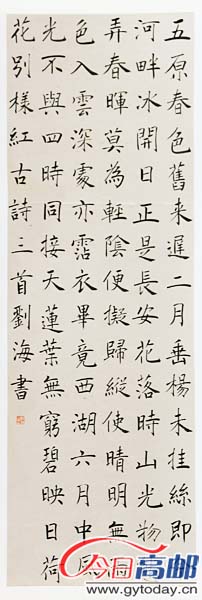 五原春色舊来遲二月垂楊未挂絲即
河畔冰開日正是長安花落時山光物
弄春暉莫為輕陰便擬歸縱使晴明無雨
色入雲深處亦霑衣畢竟西湖六月中風
光不與四時同接天蓮葉無窮碧映日荷
花别樣紅古詩三首劉海書
今日高邮
www.gytoday.cn